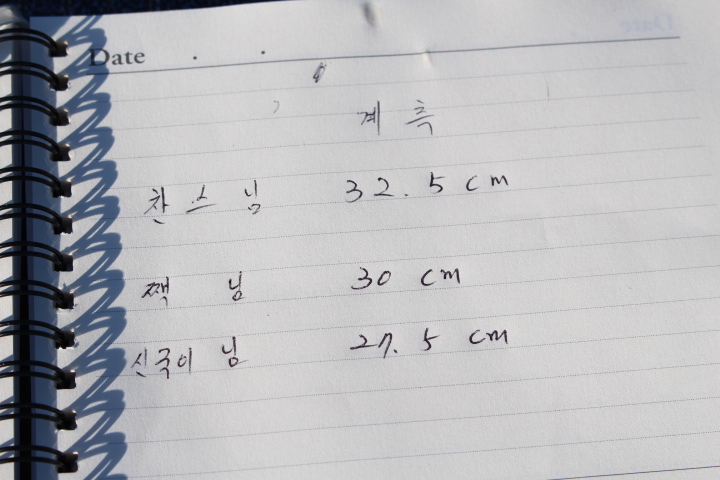 Date . .
계 측
찬스님 32.5 cm
짹 님 30 cm
신국이 님 27.5 cm